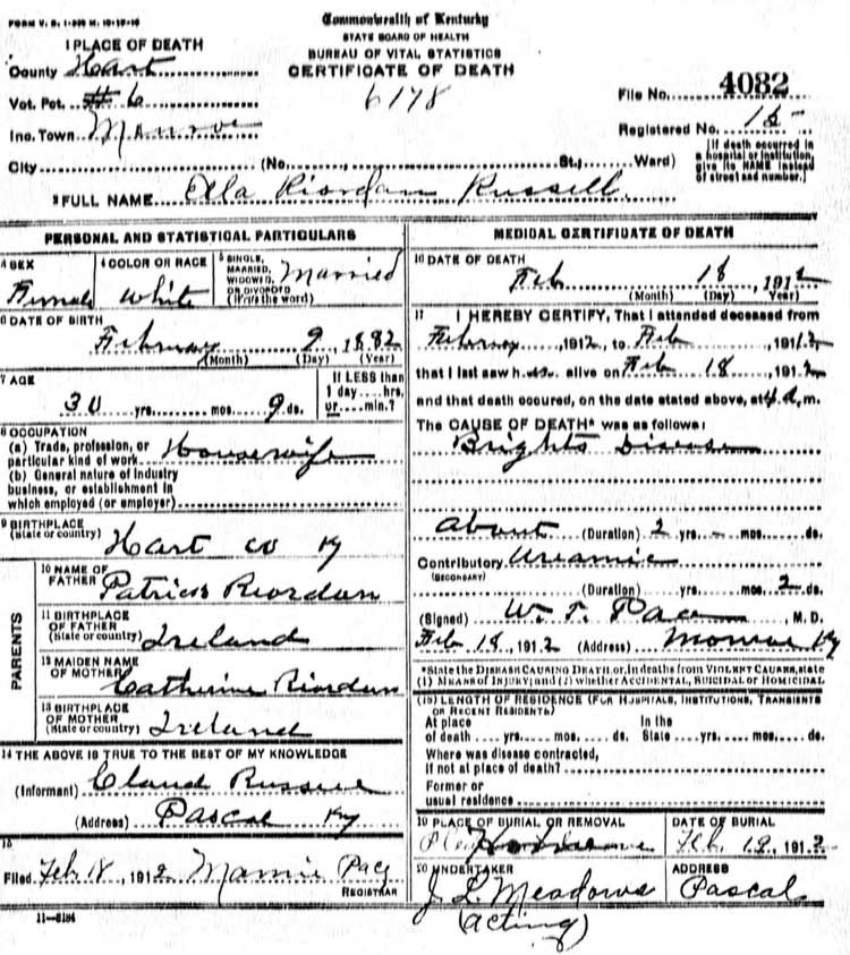 FORM V. S. 1-
Commonwealth of Kentucky
STATE BOARD OF HEALTH
BUREAU OF VITAL STATISTICS
CERTIFICATE OF DEATH
6178
1 PLACE OF DEATH
County Hart
Vot. Pct. #6
Inc. Town Monroe
File No. 4082
Registered No. 15
City (No. St.; Ward)
[If death occurred in a hospital or institution, give its NAME instead of street and number.]
2 FULL NAME Ella Riordan Russell
PERSONAL AND STATISTICAL PARTICULARS
3 SEX
Female
4 COLOR OR RACE
White
5 SINGLE, MARRIED, WIDOWED, OR DIVORCED (Write the word)
Married
6 DATE OF BIRTH
February 9, 1882
(Month) (Day) (Year)
7 AGE
30 yrs. mos. 9 ds.
If LESS than 1 day....hrs. or....min.?
8 OCCUPATION
(a) Trade, profession, or particular kind of work Housewife
(b) General nature of industry business, or establishment in which employed (or employer)
9 BIRTHPLACE (State or country)
Hart co Ky
PARENTS
10 NAME OF FATHER Patrick Riordan
11 BIRTHPLACE OF FATHER (State or country) Ireland
12 MAIDEN NAME OF MOTHER Catherine Riordan
13 BIRTHPLACE OF MOTHER (State or country) Ireland
14 THE ABOVE IS TRUE TO THE BEST OF MY KNOWLEDGE
(Informant) Claud Russell
(Address) Pascal Ky
15
Filed Feb 18, 1912 Mamie Pace
REGISTRAR
11—8184
MEDICAL CERTIFICATE OF DEATH
16 DATE OF DEATH
Feb 18, 1912
(Month) (Day) (Year)
17 I HEREBY CERTIFY, That I attended deceased from
February, 1912, to Feb, 1912
that I last saw her alive on Feb 18, 1912
and that death occured, on the date stated above, at 4 A.m.
The CAUSE OF DEATH* was as follows:
Brights Disease
about (Duration) 2 yrs. mos. ds.
Contributory Ureamic
(SECONDARY)
(Duration) yrs. mos. 2 ds.
(Signed) W. T. Pace, M. D.
Feb 18, 1912 (Address) Monroe Ky
*State the DISEASE CAUSING DEATH, or, in deaths from VIOLENT CAUSES, state
(1) MEANS of INJURY; and (2) whether ACCIDENTAL, SUICIDAL or HOMICIDAL
(18) LENGTH OF RESIDENCE (FOR HOSPITALS, INSTITUTIONS, TRANSIENTS OR RECENT RESIDENTS)
At place of death yrs. mos. ds. In the State yrs. mos. ds.
Where was disease contracted, If not at place of death?
Former or usual residence
19 PLACE OF BURIAL OR REMOVAL
DATE OF BURIAL
Feb. 19, 1912
20 UNDERTAKER
J L Meadows
(acting)
ADDRESS
Pascal